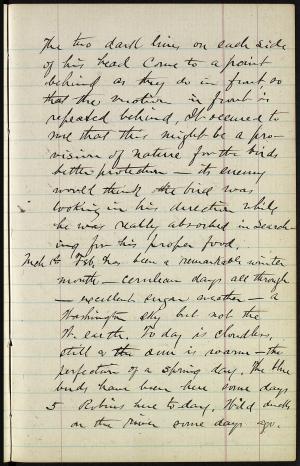 The two dark lines on each side
of his head come to a point
behind as they do in front so
that the motion in front is
repeated behind. It seemed to
me that this might be a pro-
vision of nature for the birds
better protection – its enemy
would think the bird was
looking in his direction while
he was really absorbed in search-
ing for his proper food.
Mch Feb. has been a remarkable winter
month – cerulean days all through
– excellent sugar weather – a
Washington sky but not the
W. earth. To day is cloudless,
still & the sun is warm – the
perfection of a spring day. The blue
birds have been here some days
5 Robins here to day. Wild ducks
on the river some days ago.